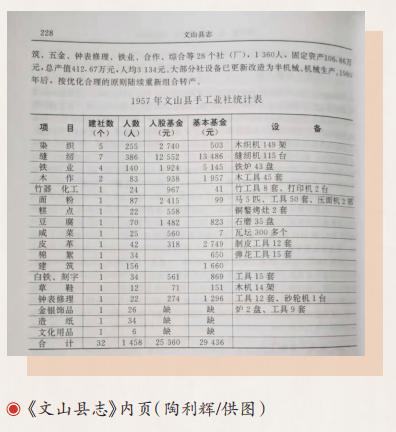 228 文山县志
筑、五金、钟表修理、铁业、合作、综合等28个社(厂),1 360人,固定资产106.86万
元,总产值412.67万元,人均3 134元。大部分社设备已更新改造为半机械、机械生产,
年后,按优化合理的原则陆续重新组合转产。
1957年文山县手工业社统计表
项 目 建社数(个) 人数(人) 入股基金(元) 基本基金(元) 设 备
染 织 5 255 2 740 503 木织机149架
缝 纫 7 386 12 552 13 486 缝纫机115台
铁 业 4 140 1 924 5 145 铁炉43盘
木 作 2 83 938 1 957 木工具45套
竹器 化工 1 24 967 41 竹工具8套、打印机2台
面 粉 1 87 2 415 99 马5匹、工具50套、压面机2部
糕 点 1 22 558 铜錾烤灶2套
豆 腐 1 70 1 482 823 石磨35盘
咸 菜 1 25 560 7 瓦坛300多个
皮 革 1 42 318 2 749 制皮工具12套
棉 絮 1 34 650 弹花工具15套
建 筑 1 156 1 660
白铁、刻字 1 34 561 869 工具15套
草 鞋 1 12 71 151 木机14架
钟表修理 1 22 274 1 296 工具12套、砂轮机1台
金银饰品 1 26 缺 缺 炉2盘、工具9套
造 纸 1 34 缺 缺
文化用品 1 6 缺 缺
合 计 32 1 458 25 360 29 436
《文山县志》内页(陶利辉/供图)